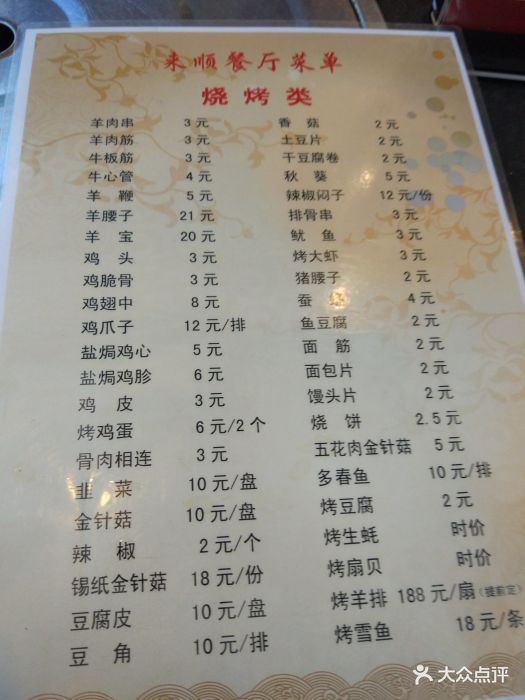 来顺餐厅菜单
烧烤类
羊肉串 3元
羊肉筋 3元
牛板筋 3元
牛心管 4元
羊鞭 5元
羊腰子 21元
羊宝 20元
鸡头 3元
鸡脆骨 3元
鸡翅中 8元
鸡爪子 12元/排
盐焗鸡心 5元
盐焗鸡胗 6元
鸡皮 3元
烤鸡蛋 6元/2个
骨肉相连 3元
韭菜 10元/盘
金针菇 10元/盘
辣椒 2元/个
锡纸金针菇 18元/份
豆腐皮 10元/盘
豆角 10元/排
香菇 2元
土豆片 2元
干豆腐卷 2元
秋葵 5元
辣椒闷子 12元/份
排骨串 3元
鱿鱼 3元
烤大虾 3元
猪腰子 2元
蚕 4元
鱼豆腐 2元
面筋 2元
面包片 2元
馒头片 2元
烧饼 2.5元
五花肉金针菇 5元
多春鱼 10元/排
烤豆腐 2元
烤生蚝 时价
烤扇贝 时价
烤羊排 188元/扇(提前定)
烤雪鱼 18元/条
大众点评